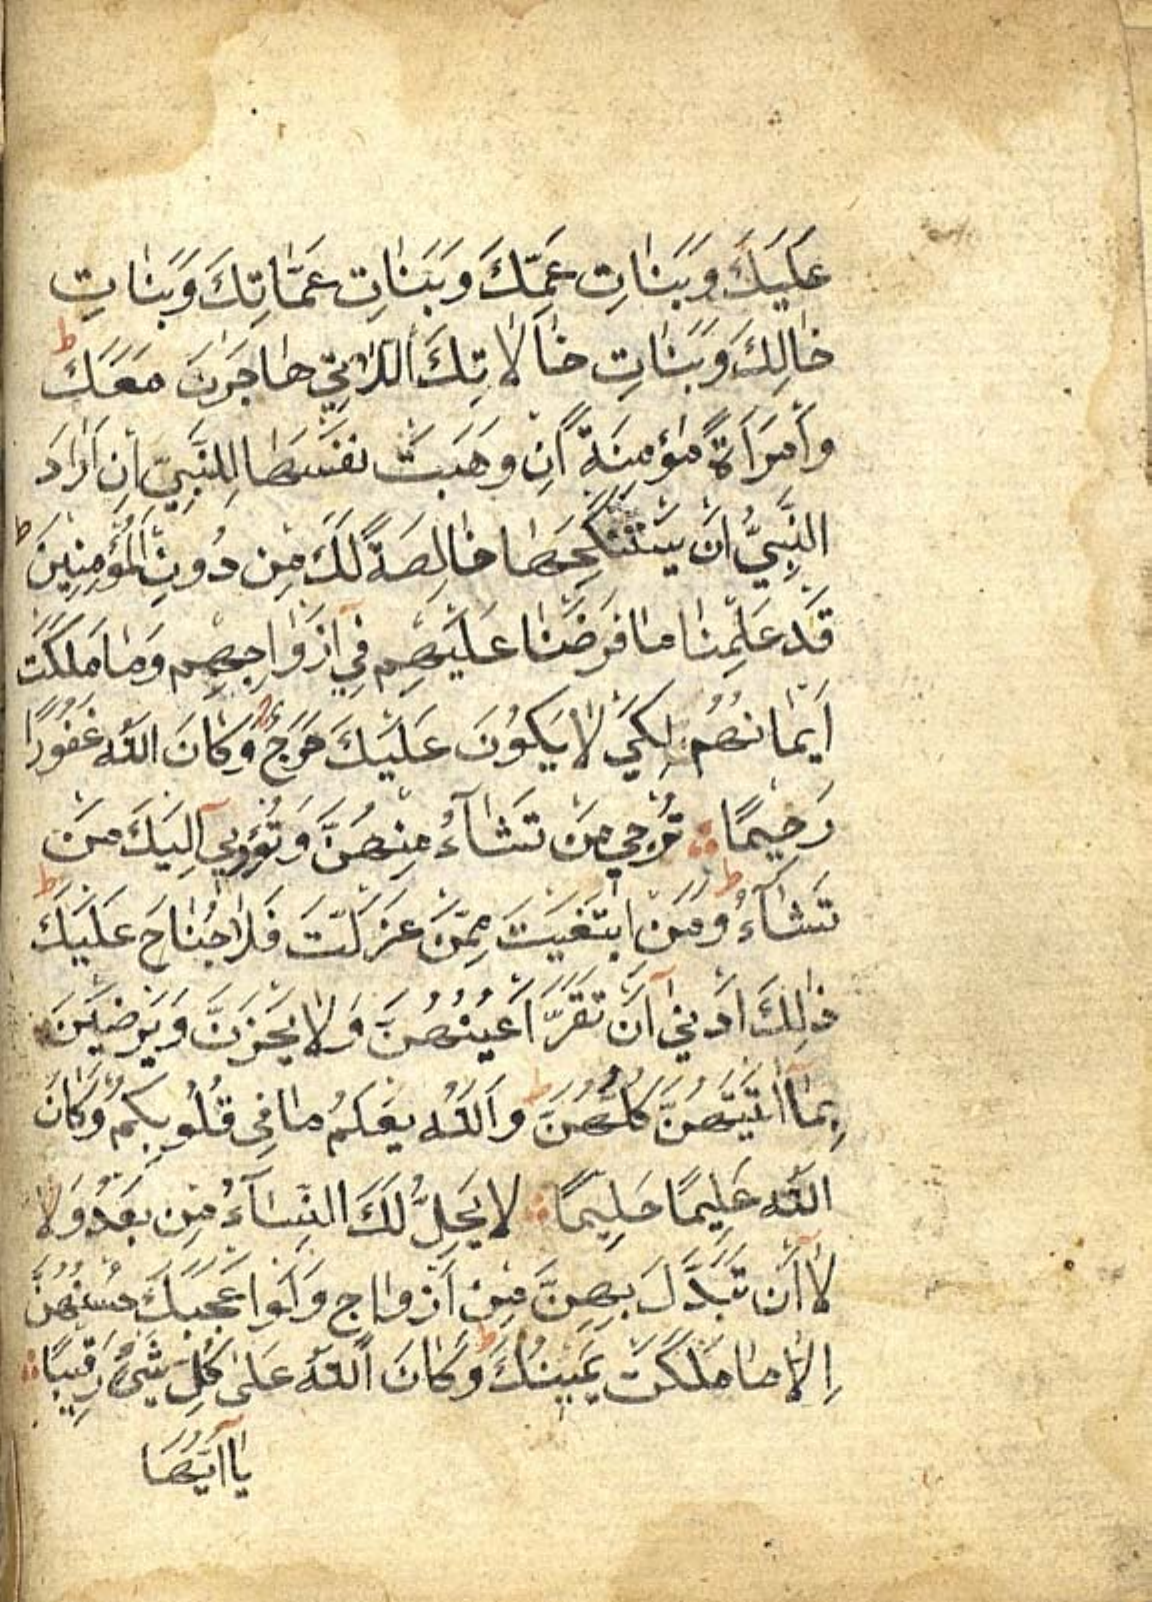 عَلَيْكَ وَبَنَاتِ عَمِّكَ وَبَنَاتِ عَمَّاتِكَ وَبَنَاتِ
خَالِكَ وَبَنَاتِ خَالَاتِكَ اللَّاتِي هَاجَرْنَ مَعَكَ ط
وَامْرَأَةً مُؤْمِنَةً اِنْ وَهَبَتْ نَفْسَهَا لِلنَّبِيِّ اِنْ اَرَادَ
النَّبِيُّ اَنْ يَسْتَنْكِحَهَا خَالِصَةً لَكَ مِنْ دُونِ الْمُؤْمِنِينَ ط
قَدْ عَلِمْنَا مَا فَرَضْنَا عَلَيْهِمْ فِي اَزْوَاجِهِمْ وَمَا مَلَكَتْ
اَيْمَانُهُمْ لِكَيْ لَا يَكُونَ عَلَيْكَ حَرَجٌ ط وَكَانَ اللّٰهُ غَفُورًا
رَحِيمًا تُرْجِي مَنْ تَشَآءُ مِنْهُنَّ وَتُؤْوِي اِلَيْكَ مَنْ
تَشَآءُ ط وَمَنِ ابْتَغَيْتَ مِمَّنْ عَزَلْتَ فَلَا جُنَاحَ عَلَيْكَ ط
ذَالِكَ اَدْنٰى اَنْ تَقَرَّ اَعْيُنُهُنَّ وَلَا يَحْزَنَّ وَيَرْضَيْنَ
بِمَآ اٰتَيْتَهُنَّ كُلُّهُنَّ ط وَاللّٰهُ يَعْلَمُ مَا فِي قُلُوبِكُمْ وَكَانَ
اللّٰهُ عَلِيمًا حَلِيمًا لَا يَحِلُّ لَكَ النِّسَآءُ مِنْ بَعْدُ وَلَا
لَآ اَنْ تَبَدَّلَ بِهِنَّ مِنْ اَزْوَاجٍ وَلَوْ اَعْجَبَكَ حُسْنُهُنَّ
اِلَّا مَا مَلَكَتْ يَمِينُكَ ط وَكَانَ اللّٰهُ عَلٰى كُلِّ شَيْءٍ رَقِيبًا
يَآ اَيُّهَا